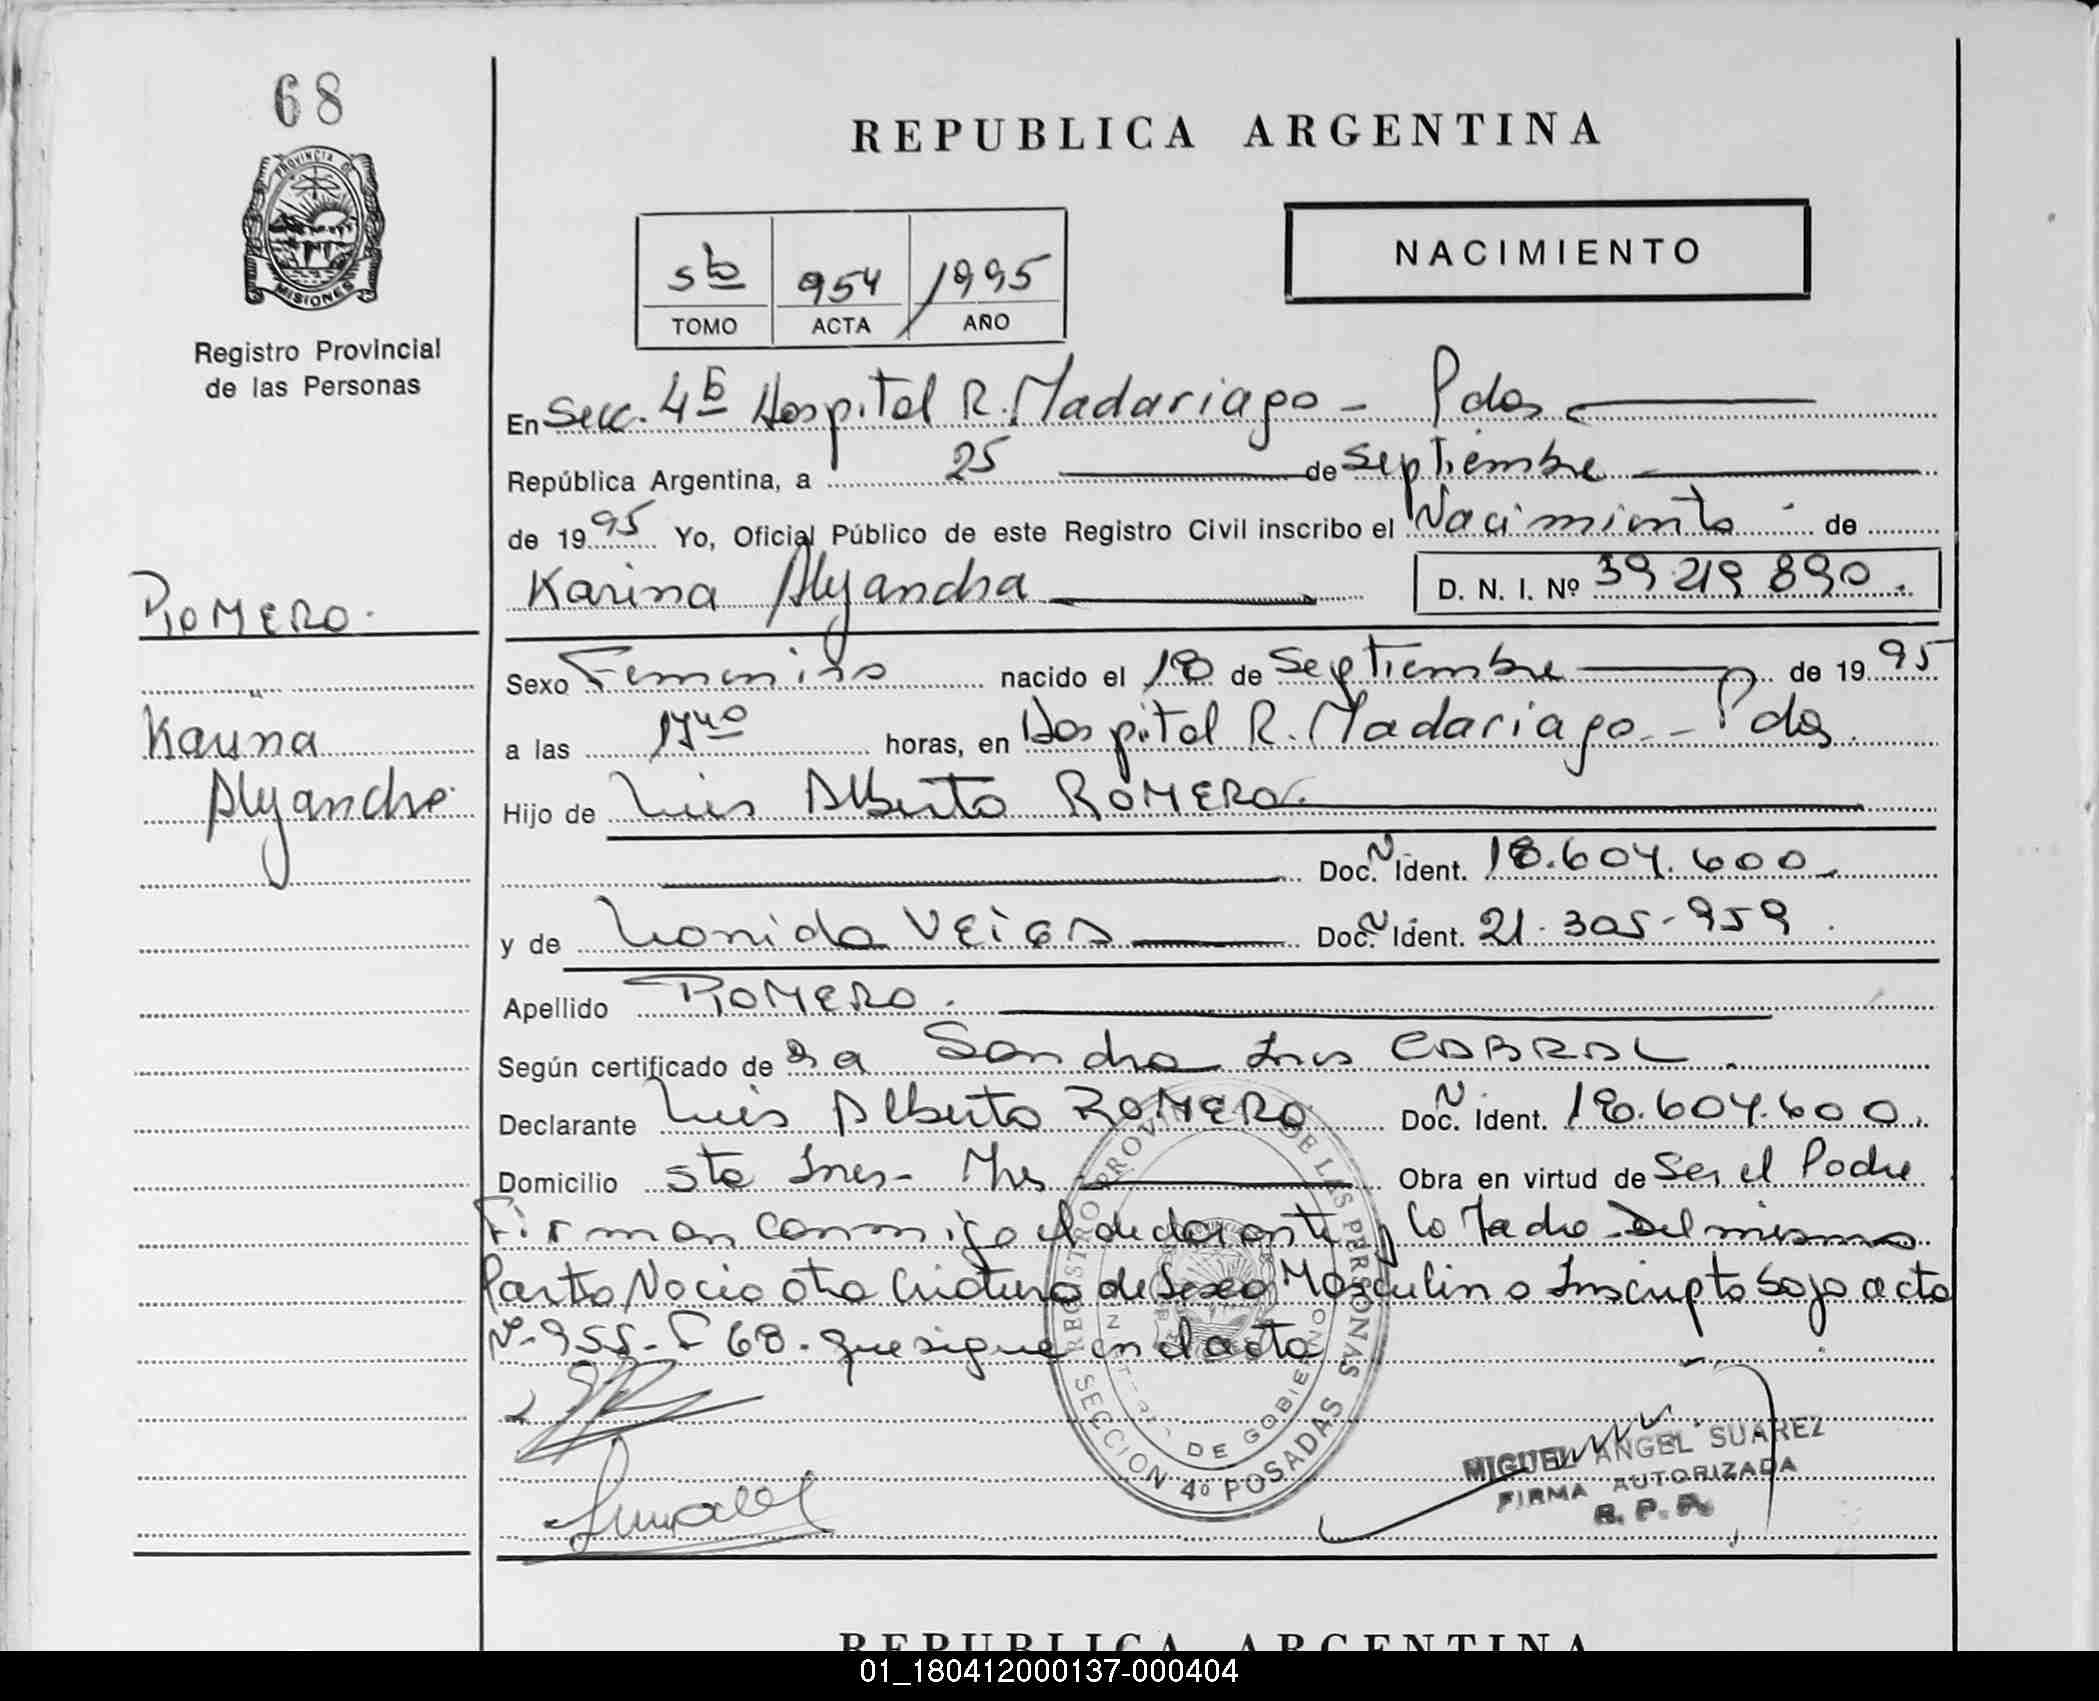 68
PROVINCIA DE
MISIONES
Registro Provincial
de las Personas
REPUBLICA ARGENTINA
NACIMIENTO
5to 954 1995
TOMO ACTA AÑO
En Secc. 4ta Hospital R. Madariaga - Pdas
República Argentina, a 25 de Septiembre
de 1995 Yo, Oficial Público de este Registro Civil inscribo el Nacimiento de
Karina Alejandra D. N. I. Nº 39 219 890.
ROMERO.
Karina
Alejandra
Sexo Femenino nacido el 18 de Septiembre de 1995
a las 17 40 horas, en Hospital R. Madariaga - Pdas.
Hijo de Luis Alberto ROMERO.
Doc. N Ident. 18.604.600
y de Leonida VEIGA Doc. N Ident. 21.305.959.
Apellido ROMERO.
Según certificado de Sandra Ines CABRAL.
Declarante Luis Alberto ROMERO Doc. N Ident. 18.604.600.
Domicilio Sta Ines - Mnes Obra en virtud de Ser el Padre
Firman conmigo el declarante y la Madre Del mismo
Parto Nacio otra Criatura de Sexo Masculino Inscripto bajo acta
Nº 955 - F 68. que sigue en el acta
REGISTRO PROVINCIAL DE LAS PERSONAS
DE GOBIERNO
SECCION 4º POSADAS
MIGUEL ANGEL SUAREZ
FIRMA AUTORIZADA
R. P. P.
REPUBLICA ARGENTINA
01_180412000137-000404